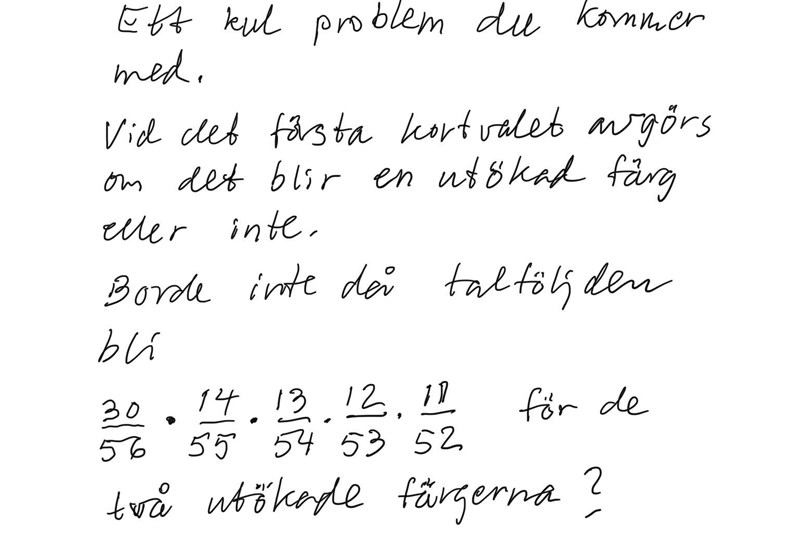 Ett kul problem du kommer
med.
Vid det första kortvalet avgörs
om det blir en utökad färg
eller inte.
Borde inte då talföljden
bli
30/56 · 14/55 · 13/54 · 12/53 · 11/52 för de
två utökade färgerna?